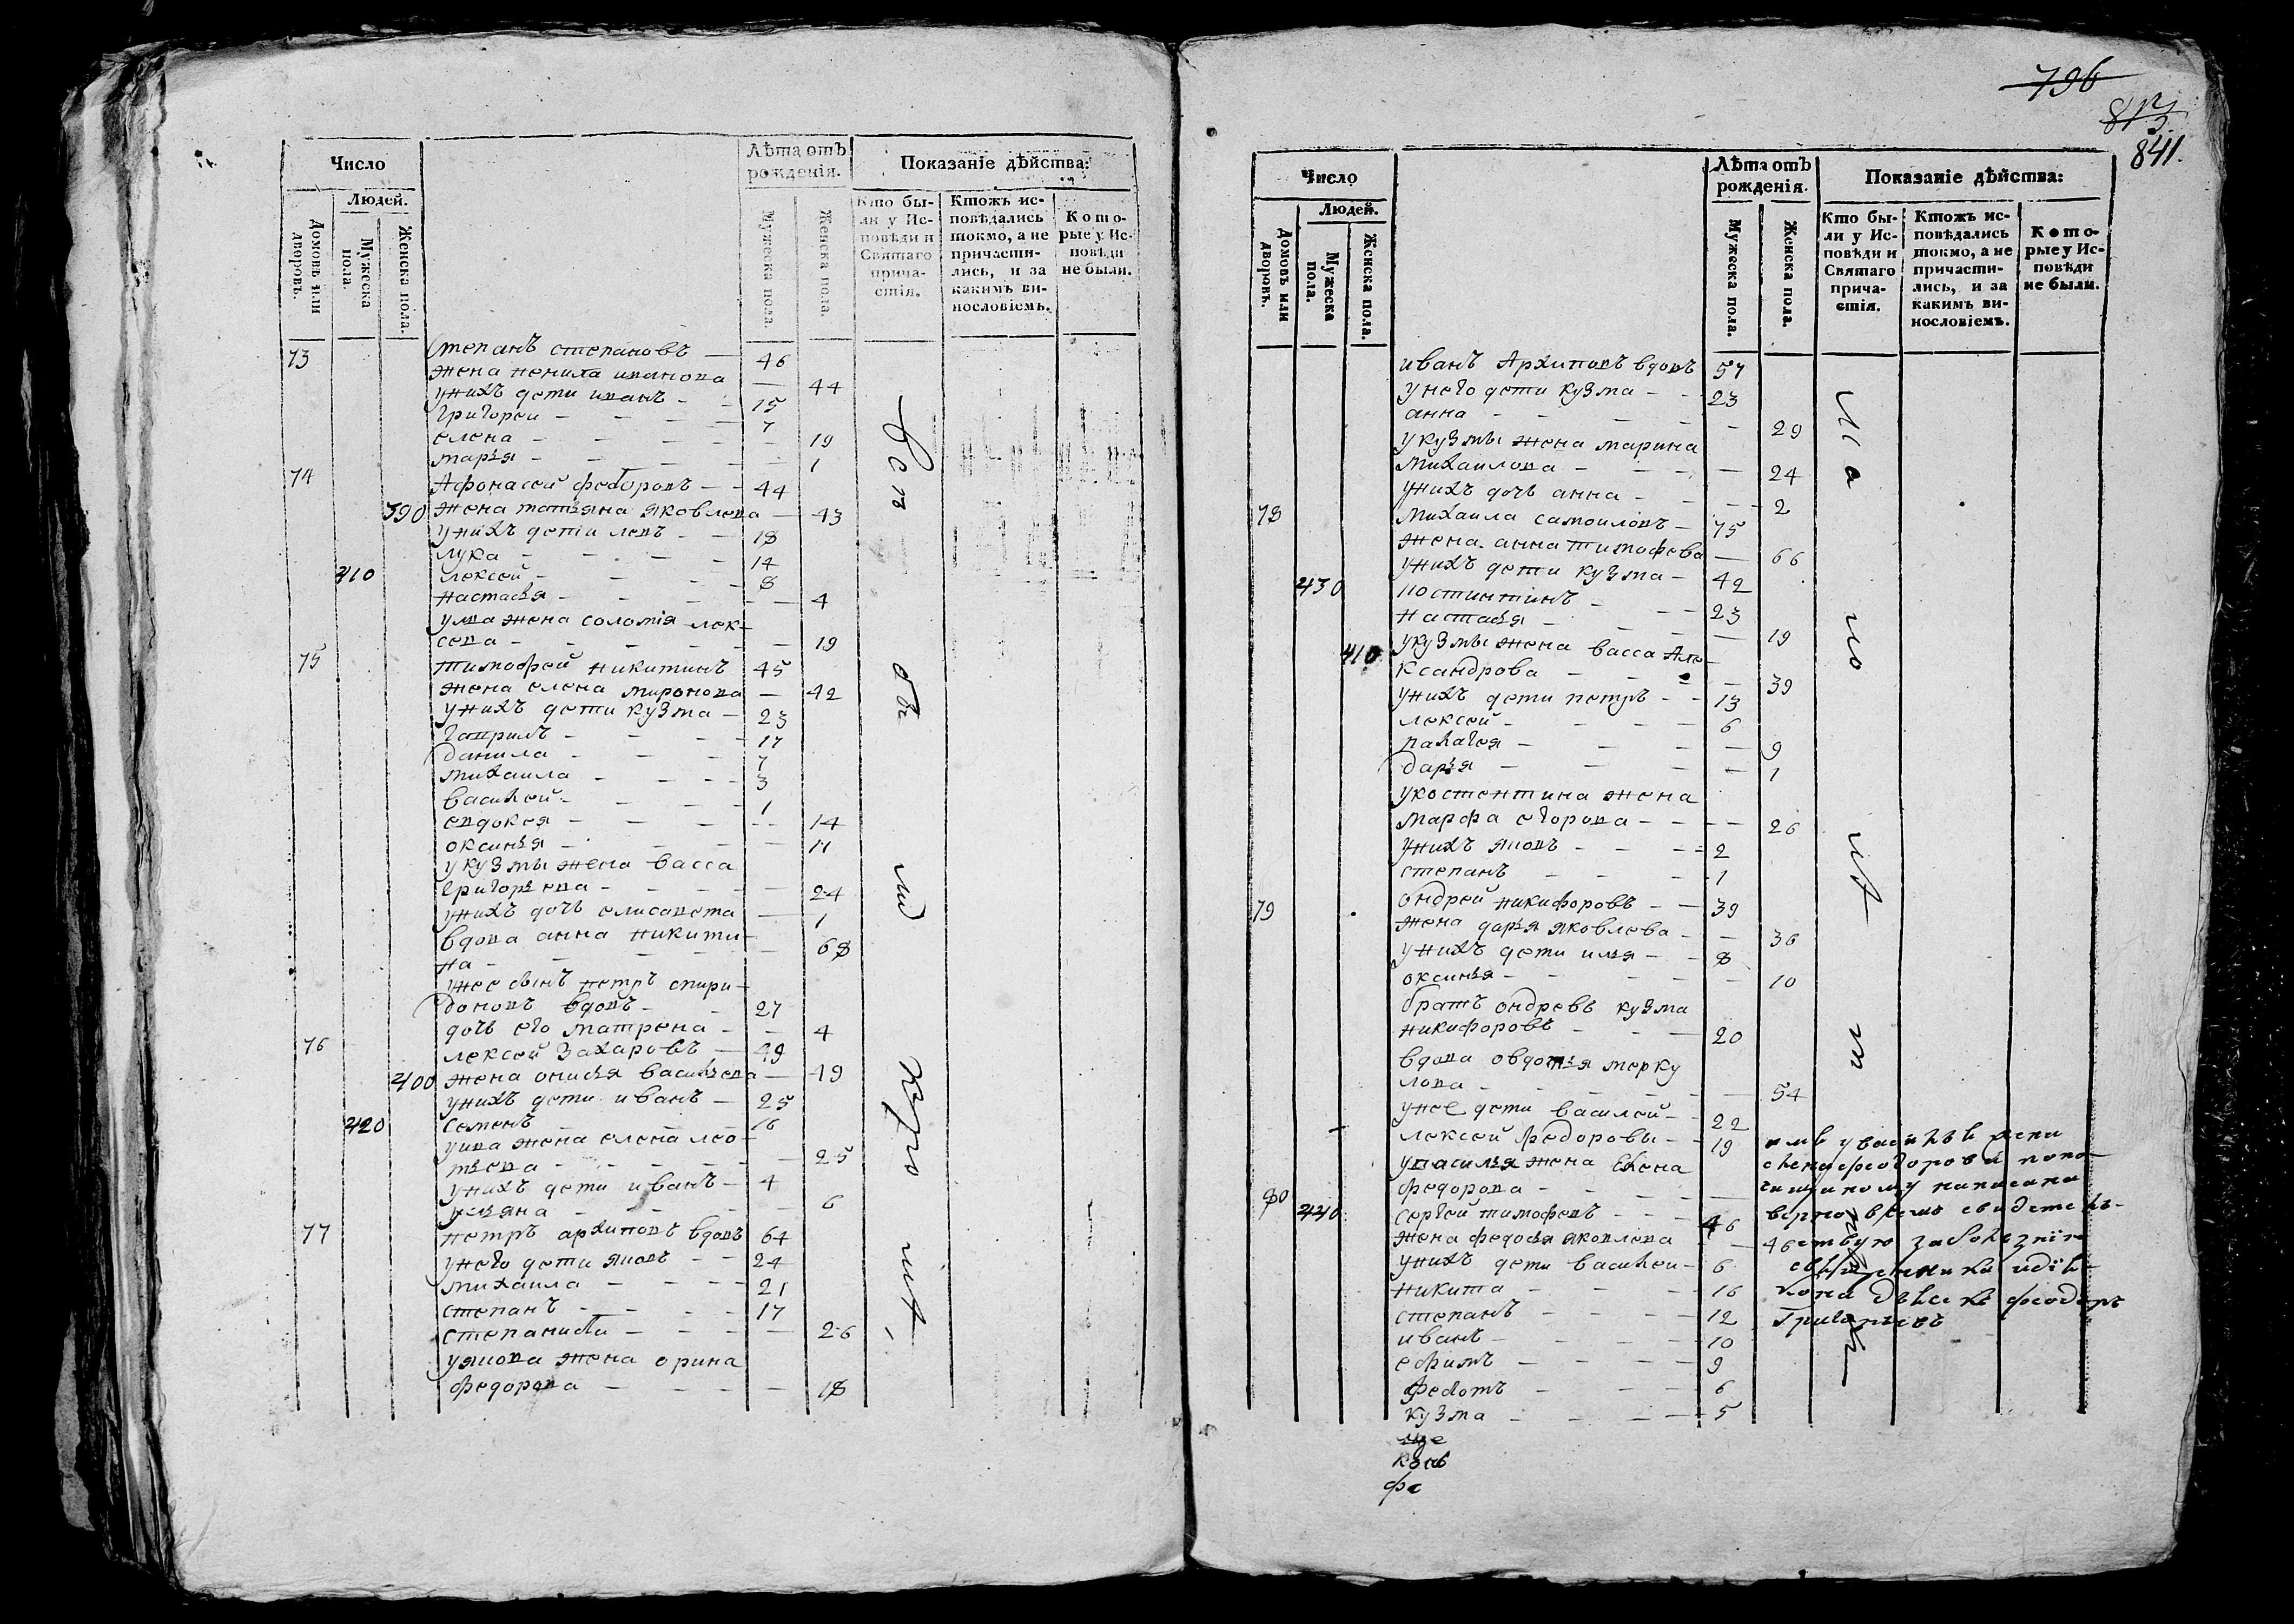 Число
Людей.
Домовъ или дворовъ.
Мужеска пола.
Женска пола.
Лѣта отъ рожденія.
Мужеска пола.
Женска пола.
Показаніе дѣйства:
Кто бы-
ли у Ис-
повѣди и
Святаго
прича-
стія.
Ктожъ ис-
повѣдались
токмо, а не
причасти-
лись, и за
какимъ ви-
нословіемъ.
Кото-
рые у Ис-
повѣди
не были.
73 Степанъ степановъ — 46
жена ненила иванова — 44
унихъ дети иванъ - - 15
Григореи - - - 7
елена - - - - 19
марья - - - - 1
74 Афонасей федоровъ - - 44
390 жена татьяна яковлева — 43
унихъ дети левъ - - 18
лука - - - - 14
410 лексей - - - - 8
настасья - - - - 4
улва жена соломія лек-
сева - - - - 19
75 тимофей никитинъ 45
жена елена миронова — 42
унихъ дети кузма - 23
гаврилъ - - - 17
данила - - - 7
михаила - - - - 3
василей - - - - 1
евдокея - - - - 14
оксинья - - - - 11
укузмы жена васса
григорьева - - - - 24
унихъ дочь елисавета — 1
вдова анна никити-
на - - - - 68
унее сынъ петръ спири-
доновъ вдовъ - - 27
дочь его матрена - - 4
76 лексей захаровъ — 49
400 жена онисья васильева — 49
унихъ дети иванъ - 25
420 семенъ - - - 16
уива жена елена лео-
тьева - - - - 25
унихъ дети иванъ - 4
ульяна - - - - 6
77 петръ архиповъ вдовъ 64
унего дети яковъ - - 24
михаила - - - 21
степанъ - - - 17
степанида - - - - 26
уякова жена орина
федорова - - - - 18
796
841.
Число
Людей.
Домовъ или дворовъ.
Мужеска пола.
Женска пола.
Лѣта отъ рожденія.
Мужеска пола.
Женска пола.
Показаніе дѣйства:
Кто бы-
ли у Ис-
повѣди и
Святаго
прича-
стія.
Ктожъ ис-
повѣдались
токмо, а не
причасти-
лись, и за
какимъ ви-
нословіемъ.
Кото-
рые у Ис-
повѣди
не были.
иванъ Архиповъ вдовъ 57
унего дети кузма - - 23
анна - - - - 29
укузмы жена марина
михаилова - - - - 24
унихъ дочь анна - - - 2
78 михаила самоиловъ - 75
жена анна тимофева — 66
унихъ дети кузма - 42
430 костинтинъ - - - 23
настасья - - - - 19
410 укузмы жена васса Але-
ксандрова - - - 39
унихъ дети петръ - - 13
лексей - - - - 6
палагея - - - - 9
дарья - - - - 1
укостентина жена
марфа егорова - - - - 26
унихъ яковъ - - - - 2
степанъ - - - - 1
79 ондрей никифоровъ - - 39
жена дарья яковлева - - 36
унихъ дети илья - - 8
оксинья - - - - 10
братъ ондревъ кузма
никифоровъ - - - 20
вдова овдотья мерку
лова - - - - 54
унее дети василей - - 22
лексей федоровы - - 19
увасилья жена елена
федорова - - - -
80 440 сергей тимофевъ - - - 46
жена федосья яковлева - 46
унихъ дети василеи - 6
никита - - - - 16
степанъ - - - - 12
иванъ - - - - 10
ефимъ - - - - 9
федотъ - - - 6
кузма - - - - 5